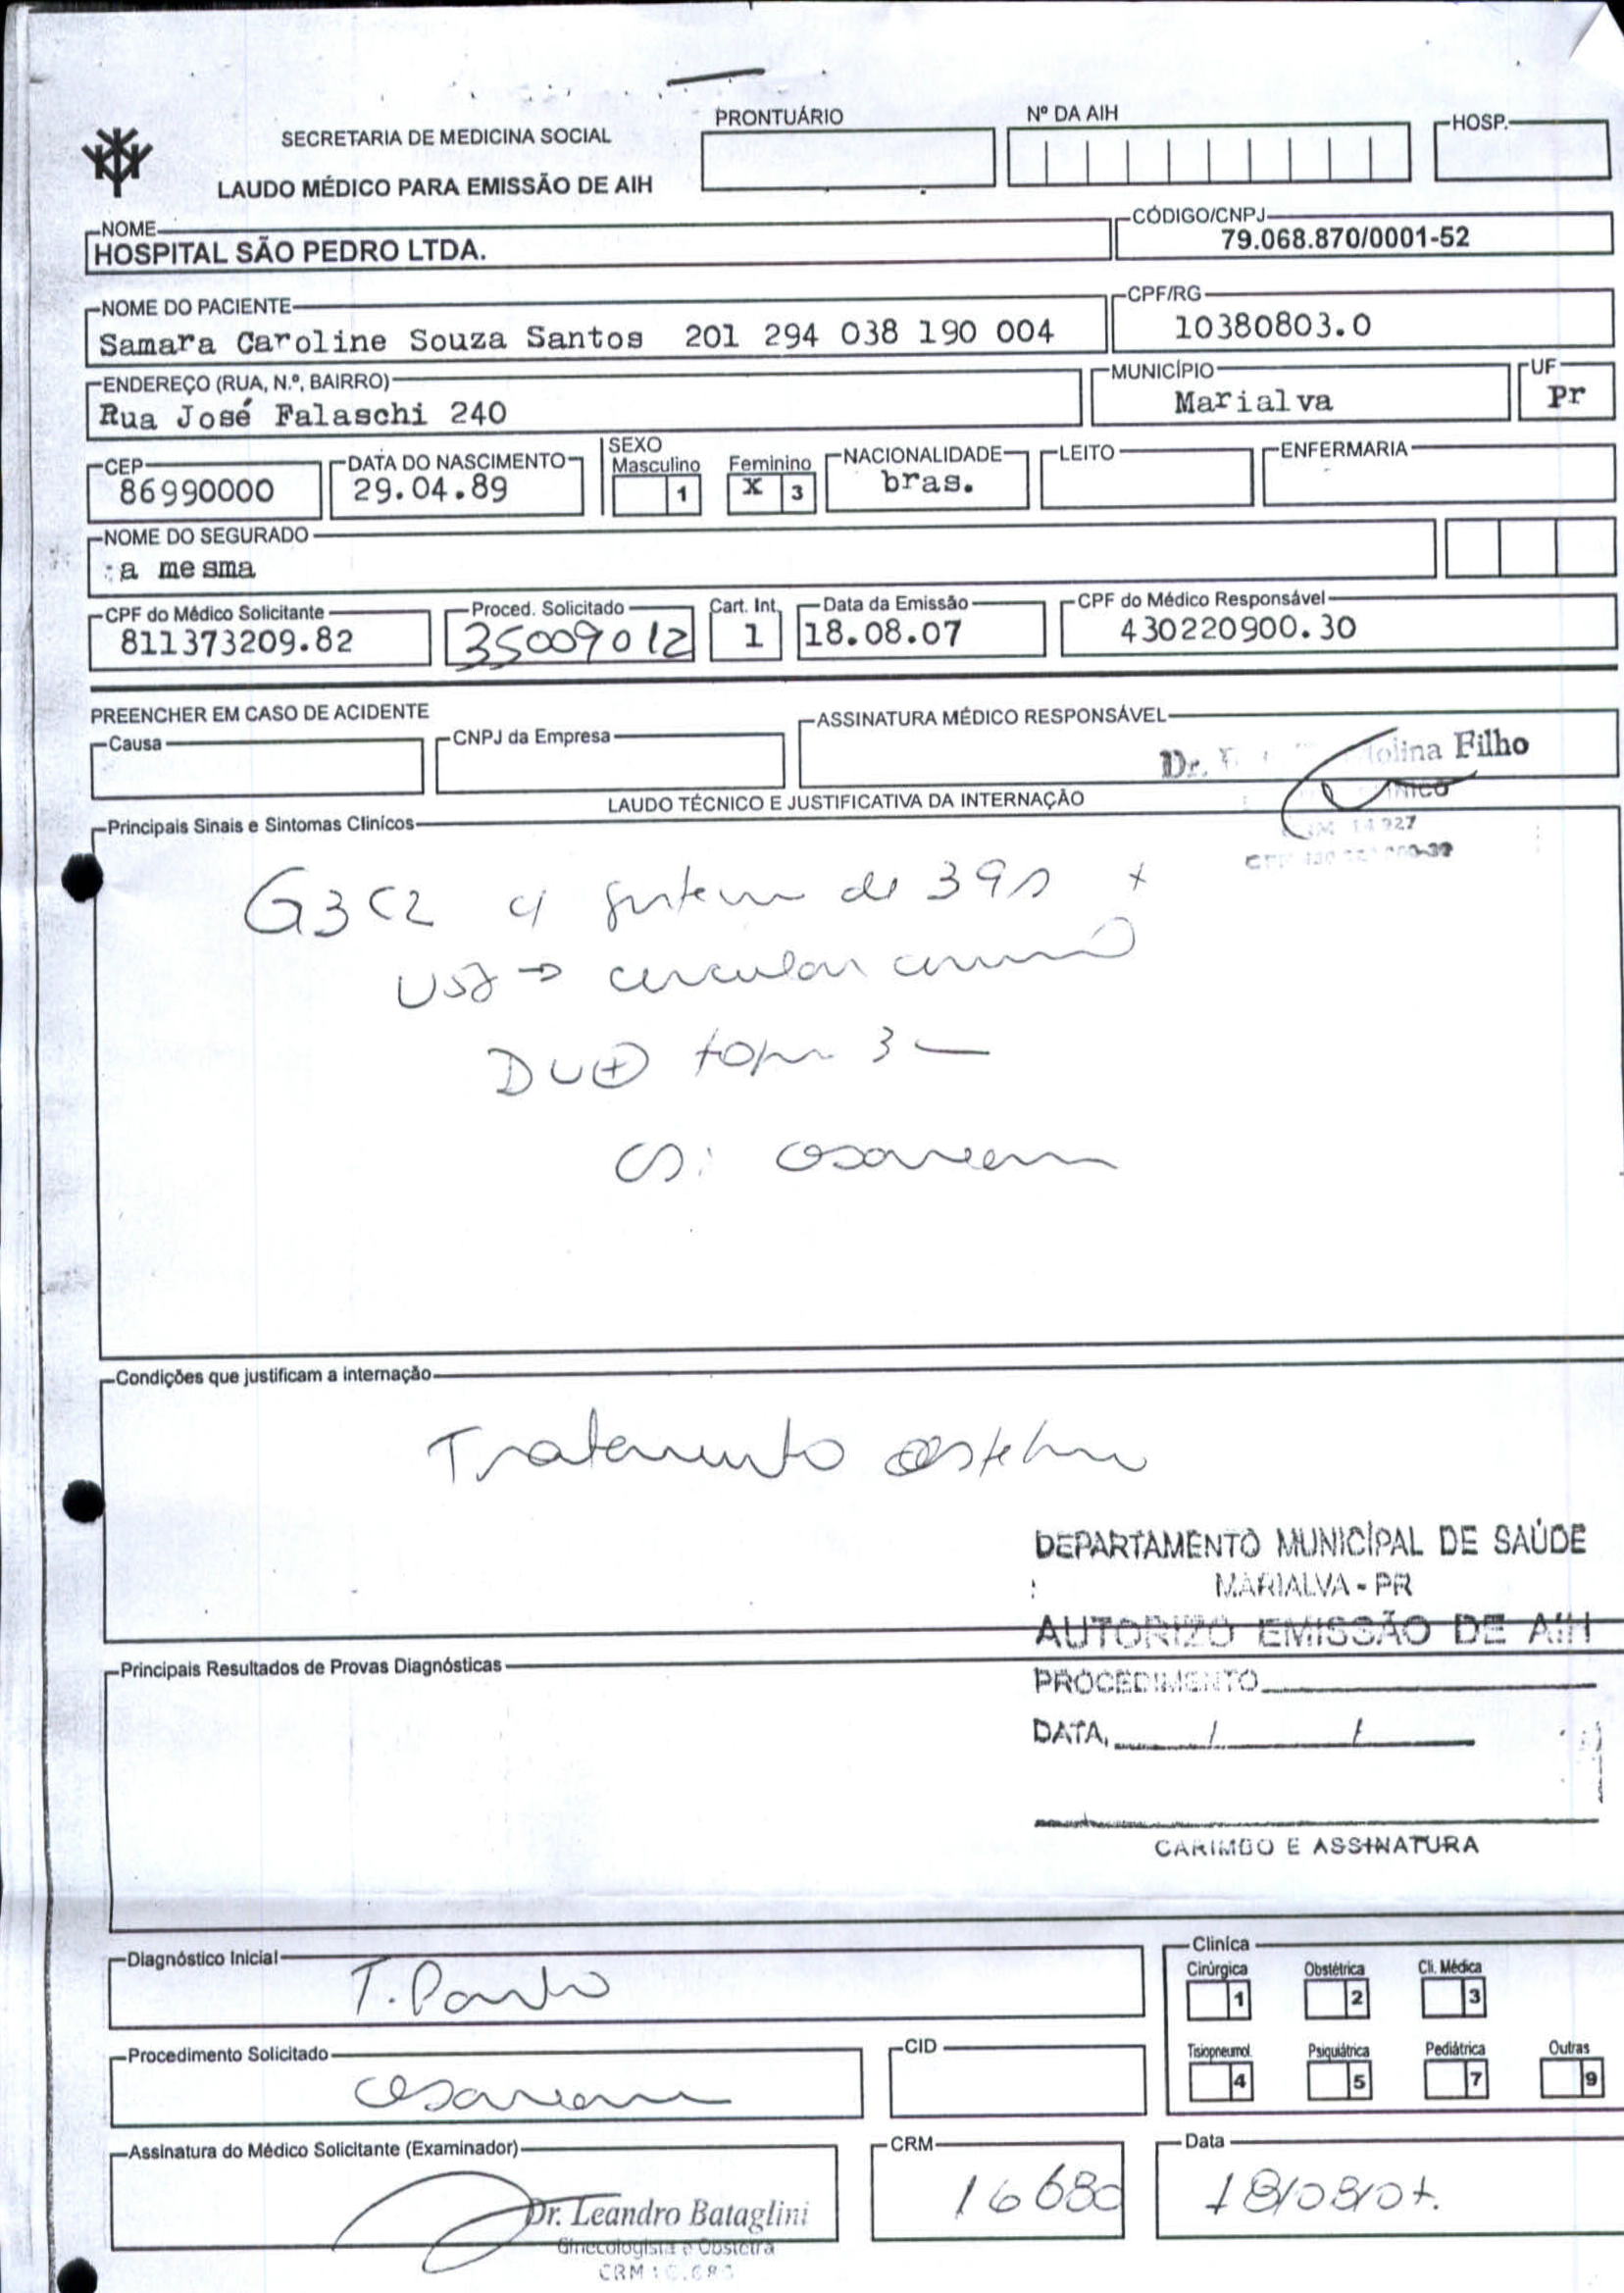 PRONTUÁRIO
Nº DA AIH
HOSP.
SECRETARIA DE MEDICINA SOCIAL
LAUDO MÉDICO PARA EMISSÃO DE AIH
NOME
HOSPITAL SÃO PEDRO LTDA.
CÓDIGO/CNPJ
79.068.870/0001-52
NOME DO PACIENTE
Samara Caroline Souza Santos 201 294 038 190 004
CPF/RG
10380803.0
ENDEREÇO (RUA, N.º, BAIRRO)
Rua José Falaschi 240
MUNICÍPIO
Marialva
UF
Pr
CEP
86990000
DATA DO NASCIMENTO
29.04.89
SEXO
Masculino 1
Feminino X 3
NACIONALIDADE
bras.
LEITO
ENFERMARIA
NOME DO SEGURADO
:a mesma
CPF do Médico Solicitante
811373209.82
Proced. Solicitado
35009012
Cart. Int.
1
Data da Emissão
18.08.07
CPF do Médico Responsável
430220900.30
PREENCHER EM CASO DE ACIDENTE
Causa
CNPJ da Empresa
ASSINATURA MÉDICO RESPONSÁVEL
Dr. Filho
LAUDO TÉCNICO E JUSTIFICATIVA DA INTERNAÇÃO
Principais Sinais e Sintomas Clinícos
G3C2 c/ de 39s +
→ circular
DU⊕ 3
cesareana
Condições que justificam a internação
Tratamento
DEPARTAMENTO MUNICÍPAL DE SAÚDE
MARIALVA - PR
AUTORIZO EMISSÃO DE AIH
Principais Resultados de Provas Diagnósticas
PROCEDIMENTO
DATA, / /
CARIMBO E ASSINATURA
Diagnóstico Inicial
T. Parto
Clínica
Cirúrgica 1
Obstétrica 2
Cli. Médica 3
Tisiopneumol. 4
Psiquiátrica 5
Pediátrica 7
Outras 9
Procedimento Solicitado
cesareana
CID
Assinatura do Médico Solicitante (Examinador)
Dr. Leandro Bataglini
Ginecologista e Obstetra
CRM
16680
Data
18/08/07.